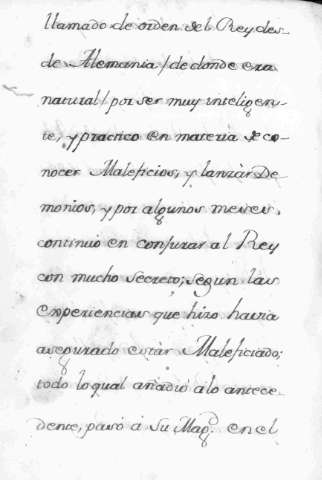 llamado de orden del Rey des-
de Alemania /de donde era
natural/ por ser muy inteligen-
te, y practico en materia de co-
nocer Maleficios, y lanzàr De
monios, y por algunos meses,
continuò en conjurar al Rey
con mucho secreto; segun las
experiencias que hizo havia
asegurado estàr Maleficiado;
todo lo qual añadio à lo antece-
dente, pasò à Su Magd. en el